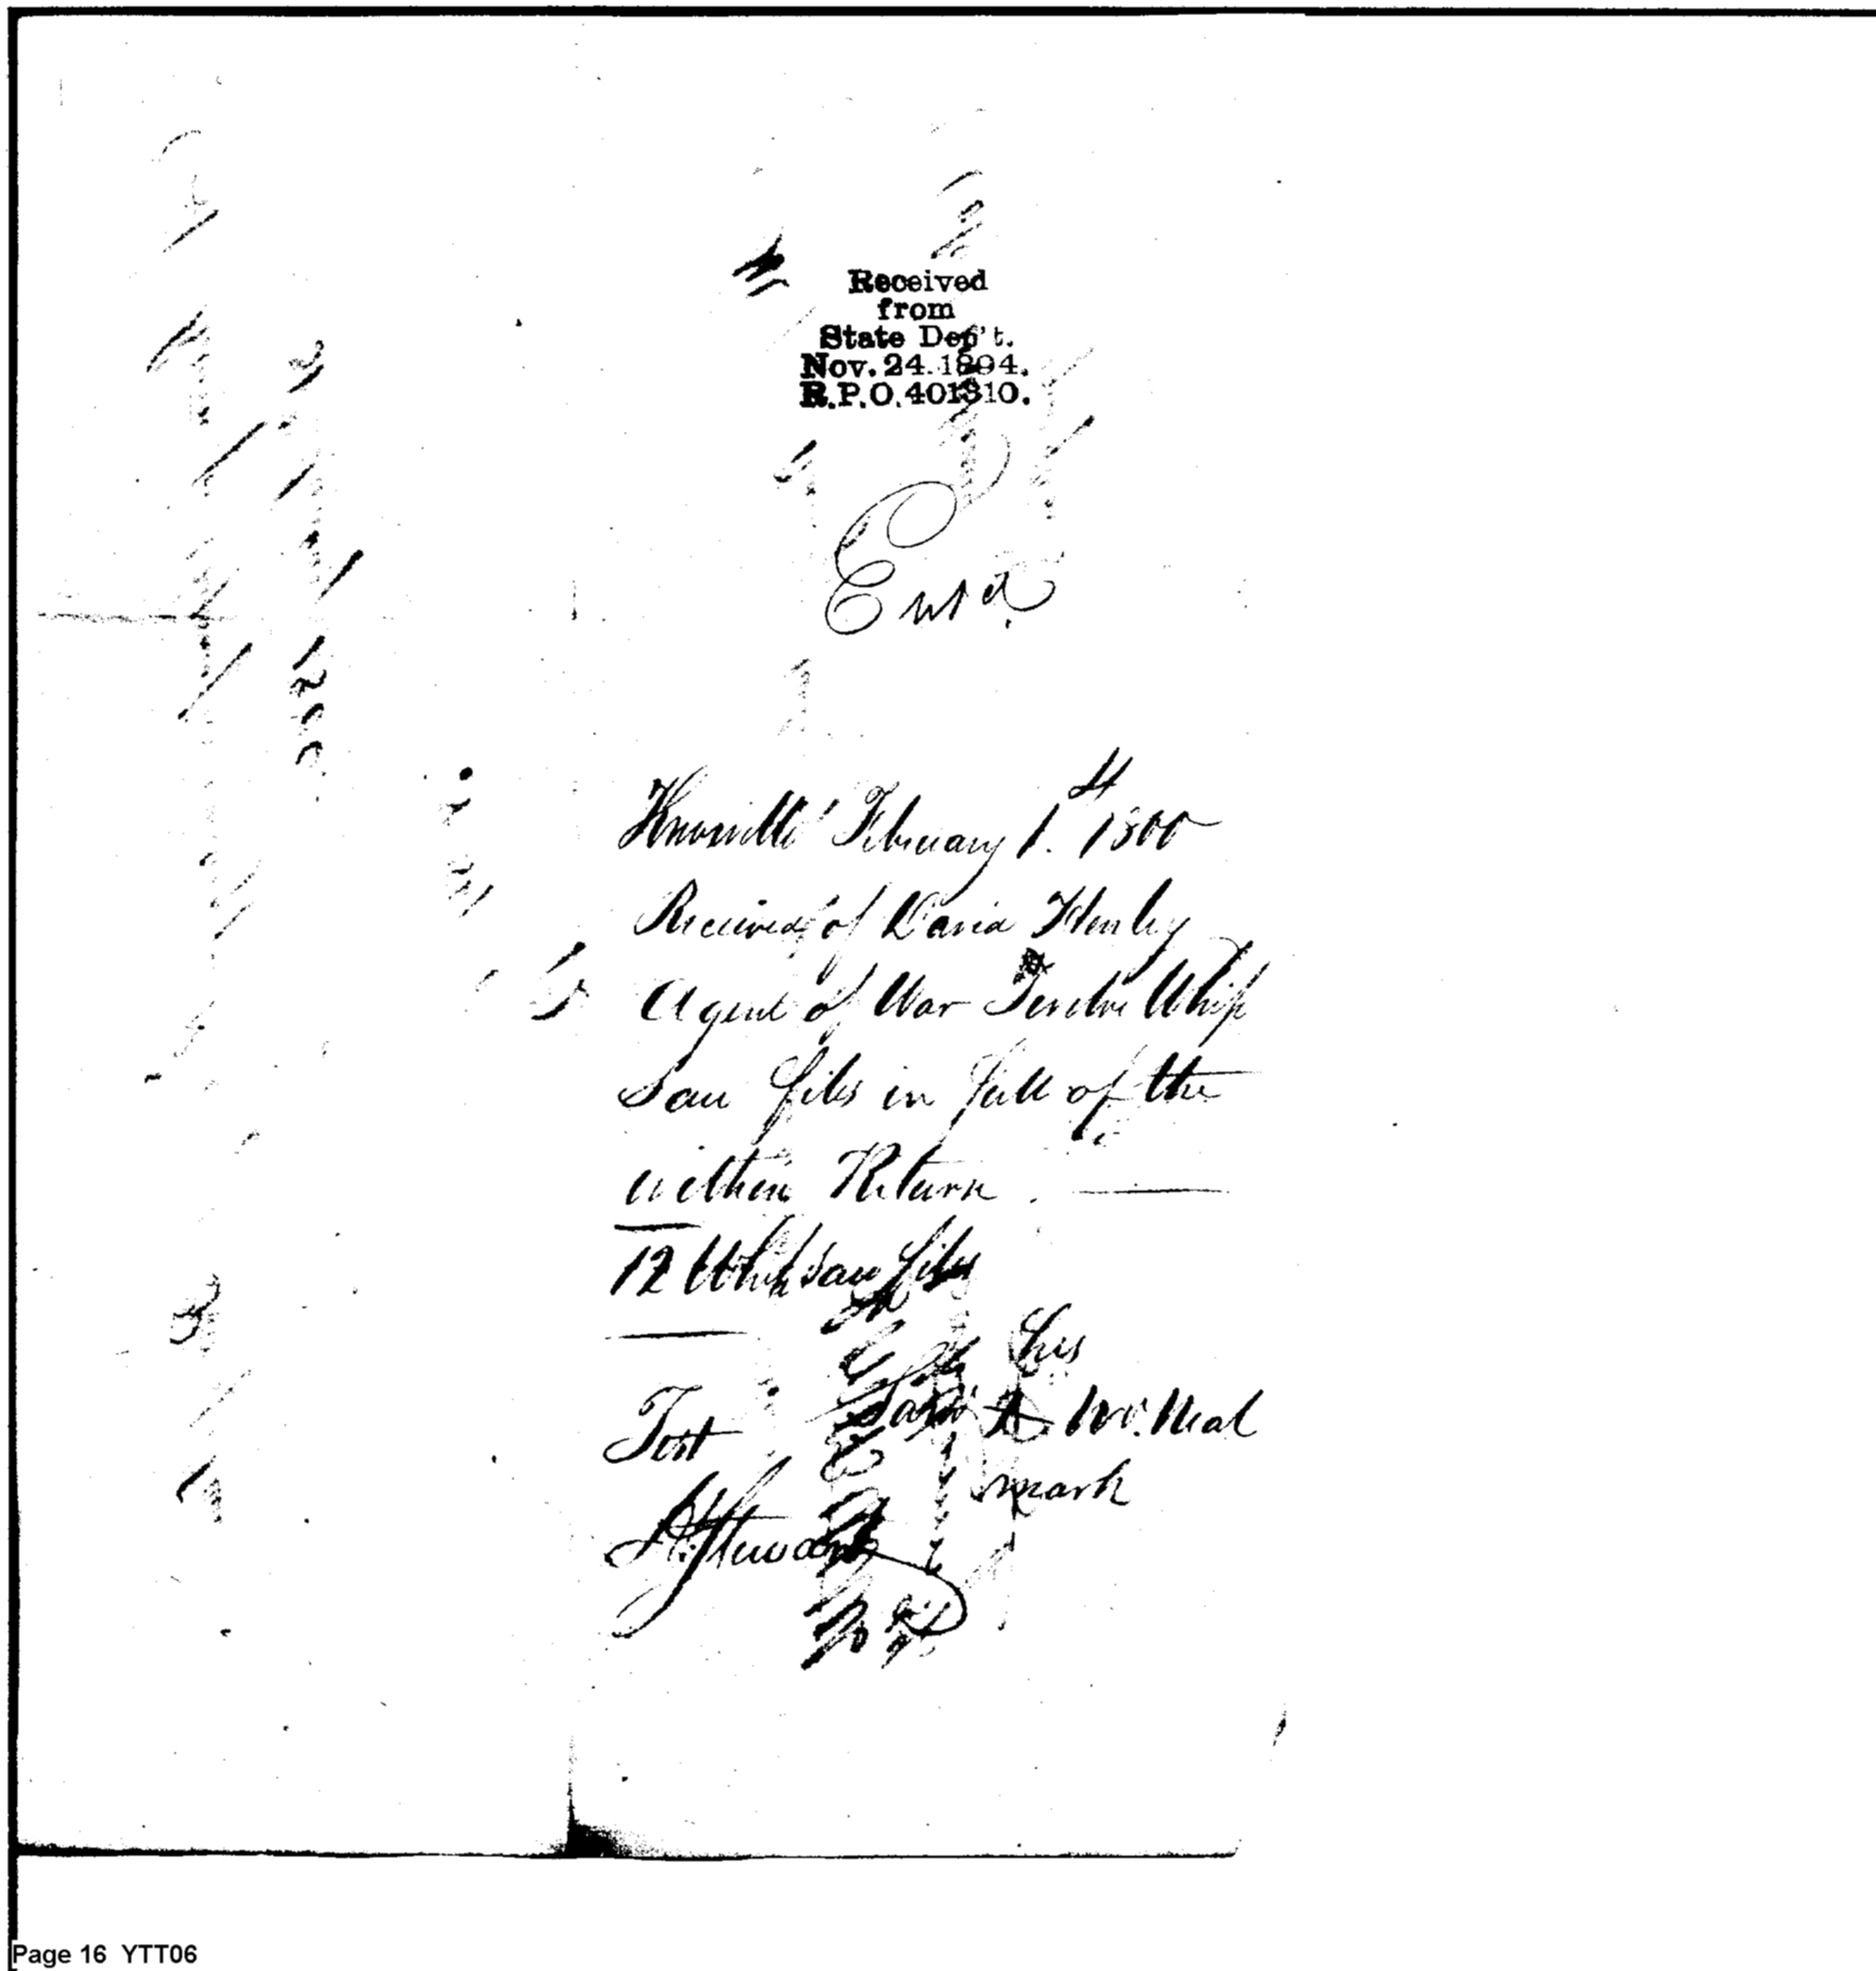 Received
from
State Dep't.
Nov. 24. 1894.
R.P.O. 401310.
Ent.d
Knoxville February 1.st 1800
Received of David Henley
Agent of War Twelve Whip
Saw files in full of the
within Return.
12 Whip Saw files
his
Mc.Neal
Test
mark
Stewart
Page 16 YTT06